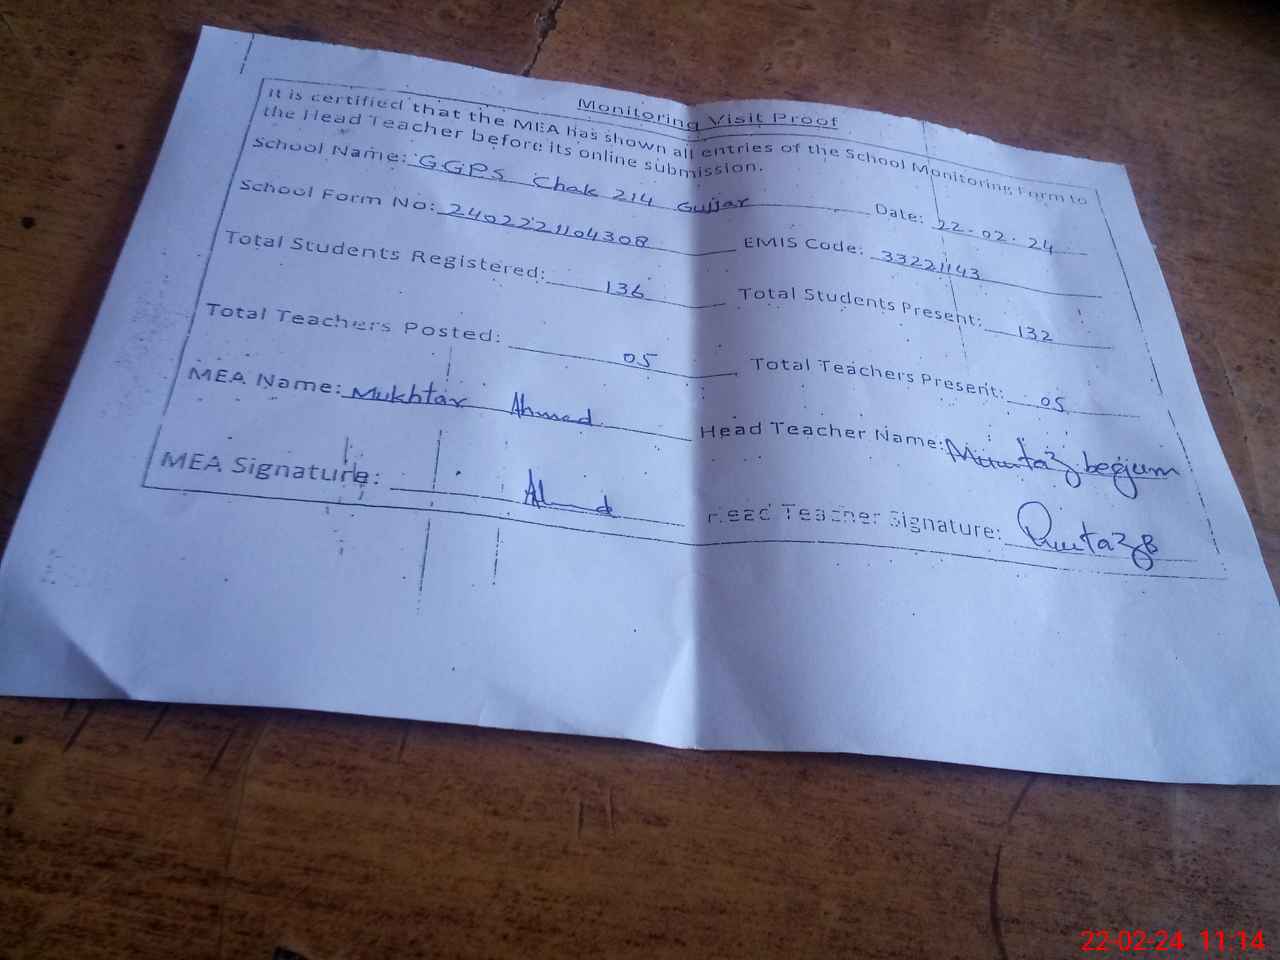 Monitoring Visit Proof
It is certified that the MEA has shown all entries of the School Monitoring Form to
the Head Teacher before its online submission.
School Name: G.G.P.S Chak 214 Gujjar Date: 22-02-24
School Form No: 2402221104308 EMIS Code: 33221143
Total Students Registered: 136 Total Students Present: 132
Total Teachers Posted: 05 Total Teachers Present: 05
MEA Name: Mukhtar Ahmad Head Teacher Name: Mumtaz begum
MEA Signature: Head Teacher Signature:
22-02-24 11:14